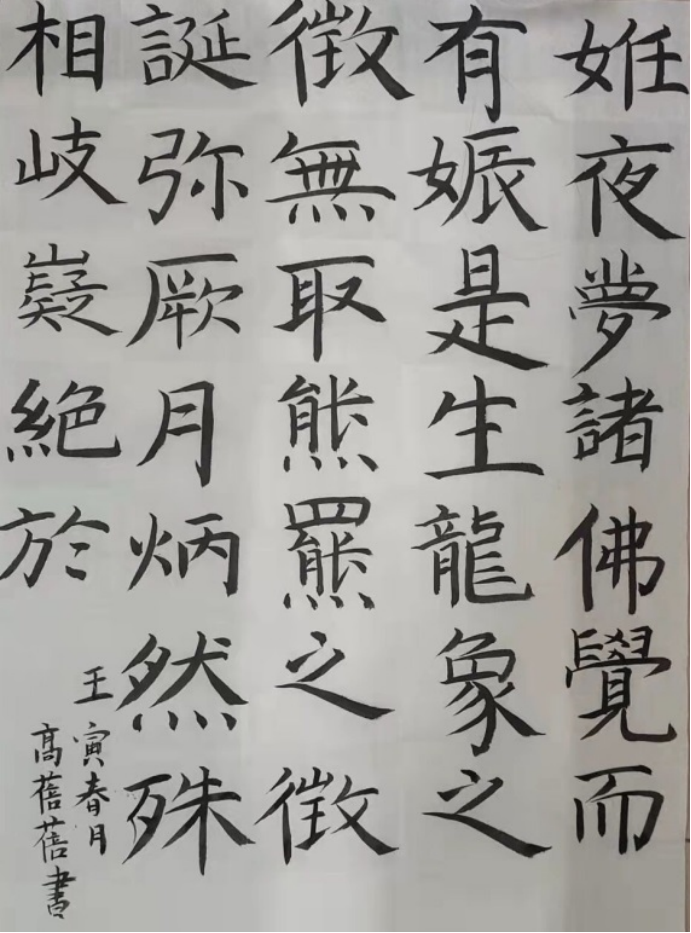 姙夜夢諸佛覺而
有娠是生龍象之
徵無取熊羆之徵
誕弥厥月炳然殊
相岐嶷絕於
壬寅春月
高蓓蓓書